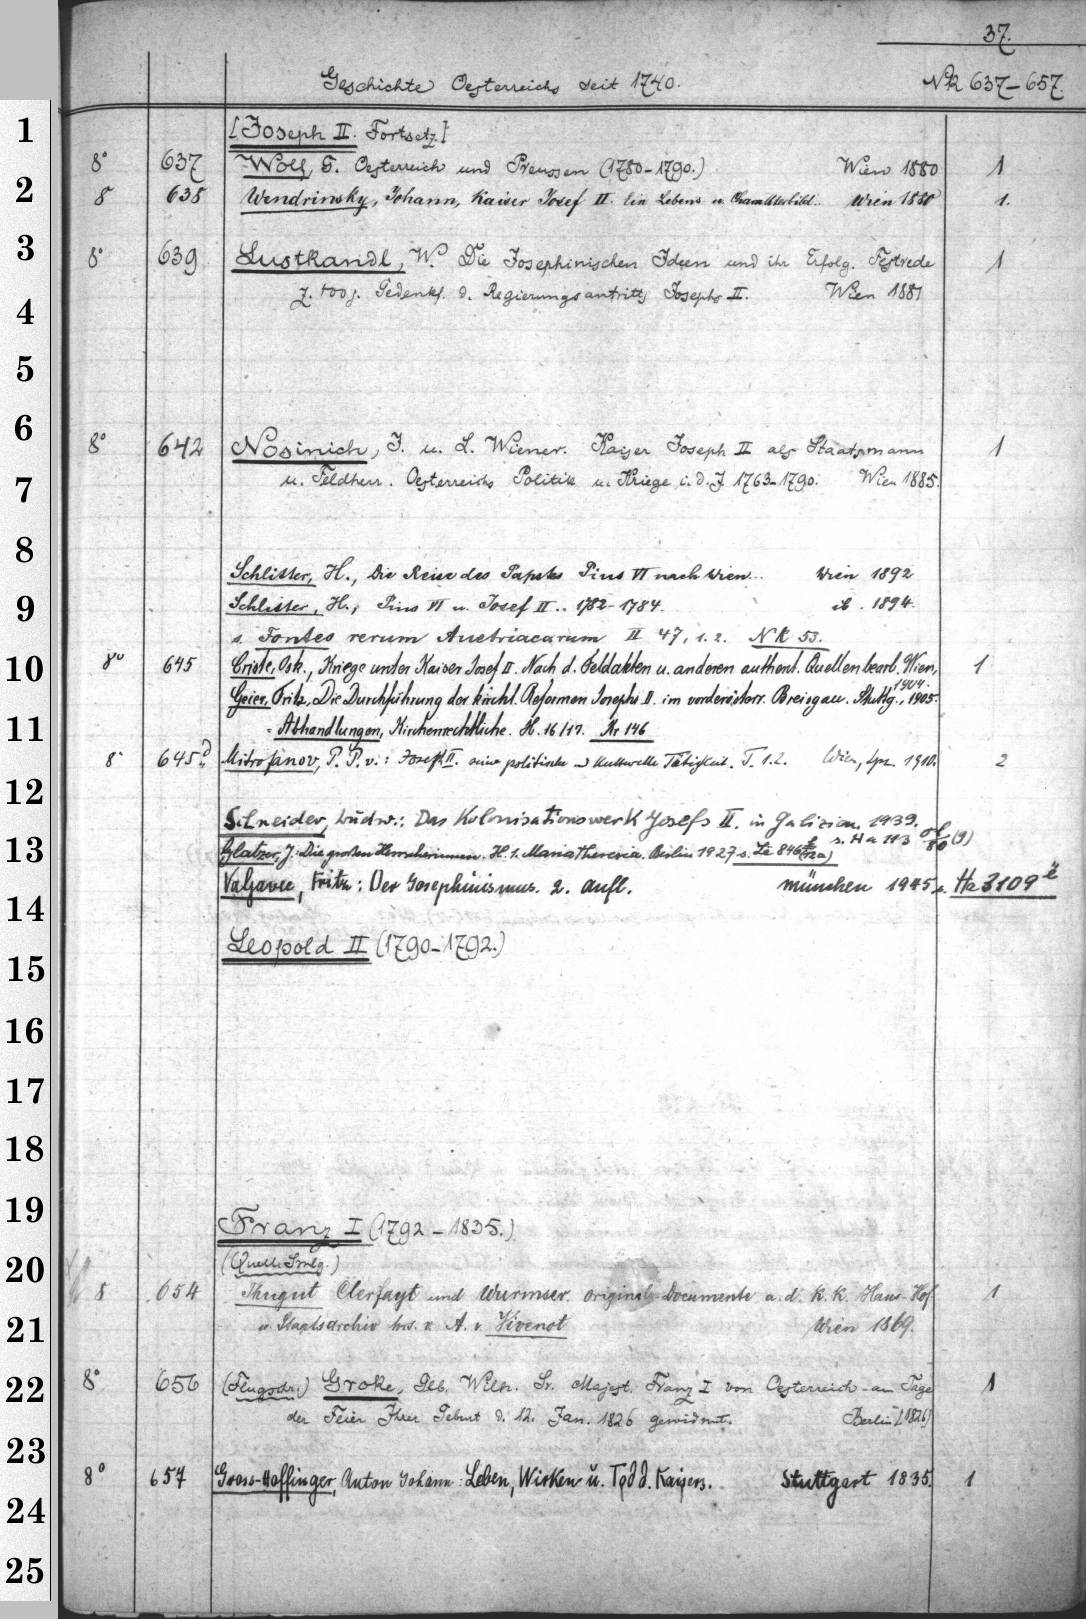 37.
Geschichte Oesterreichs seit 1740. No 637-657
1
[Joseph II. Fortsetz.]
8° 637 Wolf, G. Oesterreich und Preussen (1780-1790.) Wien 1880 1
2
8° 638 Wendrinsky, Johann, Kaiser Josef II. Ein Lebens u. Charakterbild.. Wien 1880 1.
3
8° 639 Lustkandl, W. Die Josephinischen Ideen und ihr Erfolg. Festrede 1
z. 100j. Gedenkf. d. Regierungsantritts Josephs II. Wien 1881
4
5
6
8° 642 Nosinich, J. u. L. Wiener. Kaiser Joseph II als Staatsmann 1
u. Feldherr. Oesterreichs Politik u. Kriege i. d. J. 1763-1790. Wien 1885.
7
8
Schlitter, H., Die Reise des Papstes Pius VI nach Wien... Wien 1892
9
Schlitter, H., Pius VI u. Josef II.. 1782-1784. ib. 1894.
s. Fontes rerum Austriacarum II 47, 1. 2. NK 53.
10
8° 645 Criste, Osk., Kriege unter Kaiser Josef II. Nach d. Feldakten u. anderen authent. Quellen bearb. Wien, 1904. 1
Geier, Fritz, Die Durchführung der kirchl. Reformen Josephs II. im vorderösterr. Breisgau. Stuttg., 1905.
11
= Abhandlungen, Kirchenrechtliche. H. 16/17. Kr 146
8° 645 d Mitrofanov, P. P. v.: Josef II. seine politische u kulturelle Tätigkeit. T. 1.2. Wien, Lpz. 1910. 2
12
Schneider, Ludw.: Das Kolonisationswerk Josefs II. in Galizien. 1939.
s. Ha 113 (9)
13
Glatzer, J. Die grossen Herrscherinnen. H. 1. Maria Theresia. Berlin 1927 s.
Valjavec, Fritz: Der Josephinismus. 2. Aufl. München 1945 s. Ha 3109 ë
14
Leopold II (1790-1792.)
15
16
17
18
19
Franz I (1792-1835.)
(Quell. Smlg.)
20
8 654 Thugut Clerfayt und Wurmser. Original Documente a. d. K. K. Haus- Hof 1
21
u Staatsarchiv hrs. v. A. v. Vivenot Wien 1869.
22
8° 656 (Flugschr.) Groke, Geb. Wilh. Sr. Majest. Franz I von Oesterreich am Tage 1
der Feier Ihrer Geburt d. 12. Jan. 1826 gewidmet. Berlin [1826]
23
8° 657 Gross-Hoffinger, Anton Johann: Leben, Wirken u. Tod d. Kaisers. Stuttgart 1835. 1
24
25